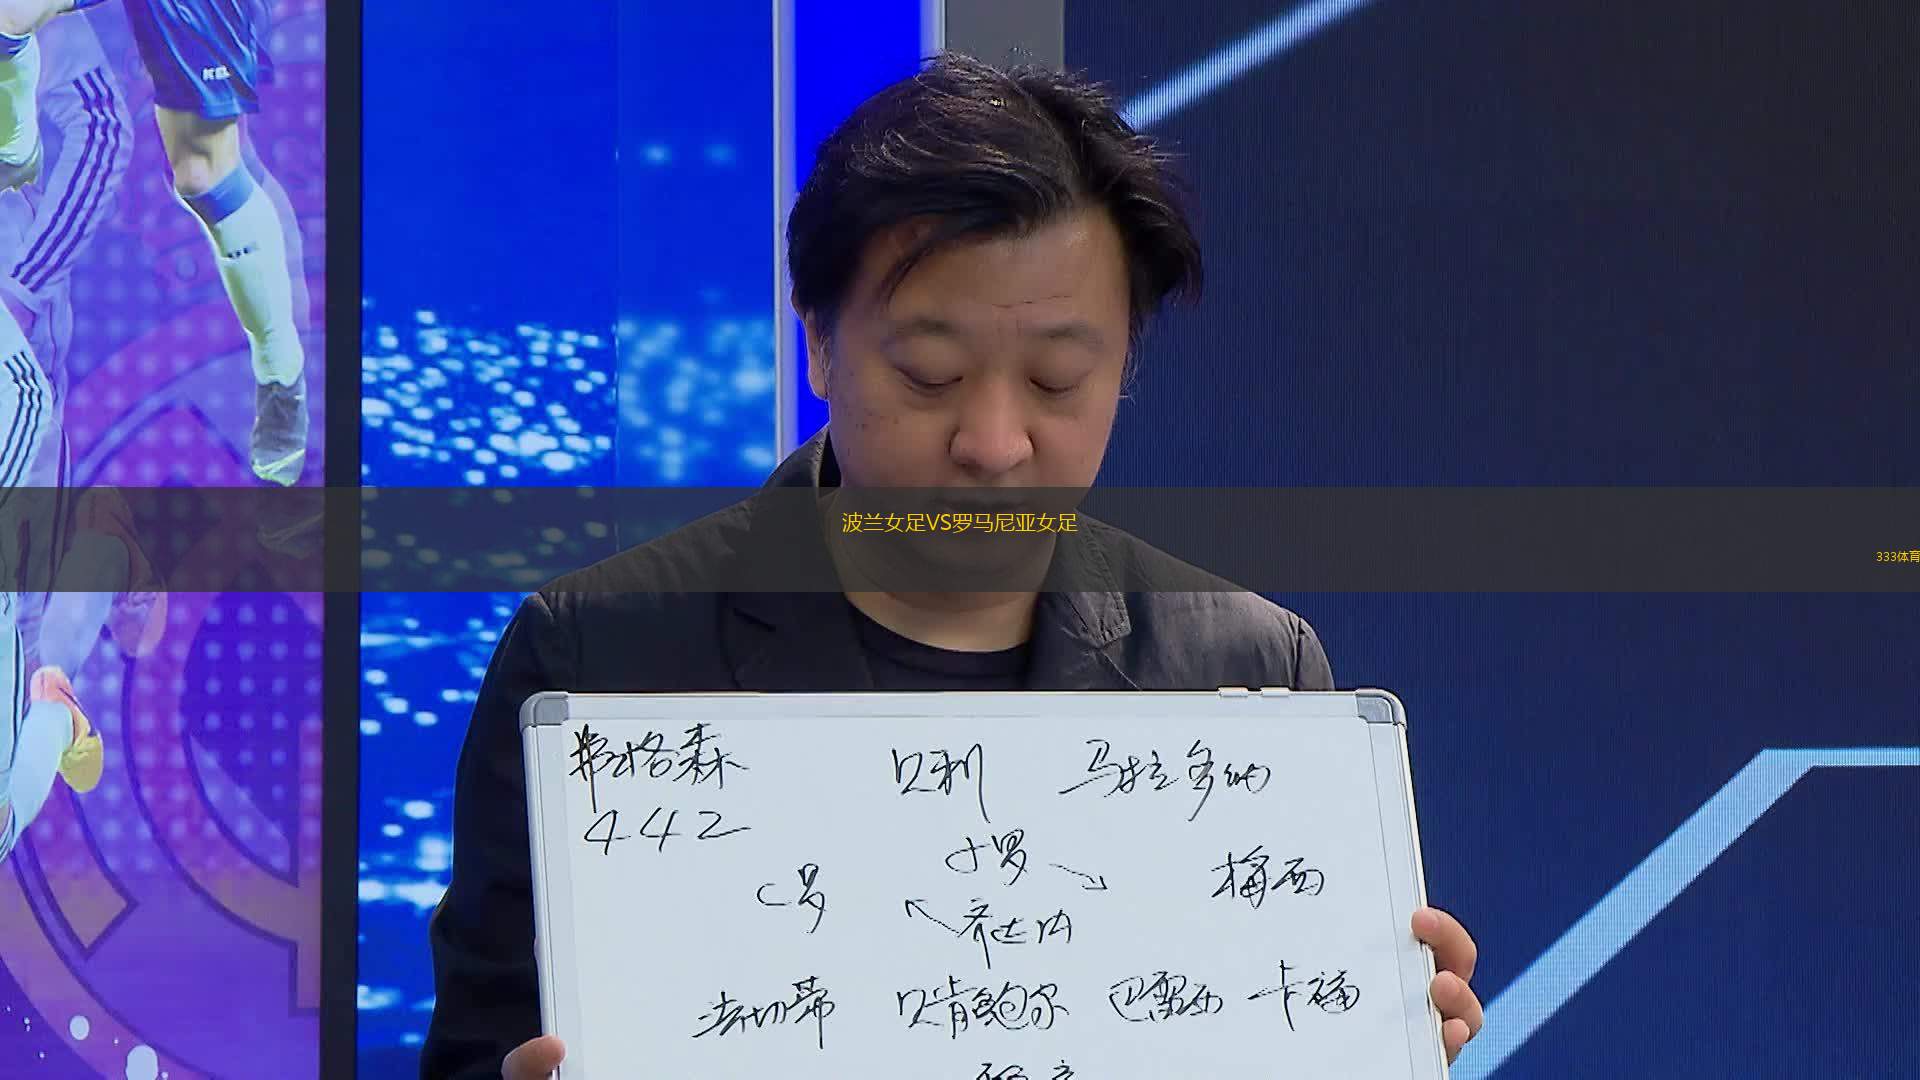 KEL
波兰女足VS罗马尼亚女足
333体育
弗格森 贝利 马拉多纳
442
小罗
C罗 梅西
齐达内
法切蒂 贝肯鲍尔 巴雷西 卡福